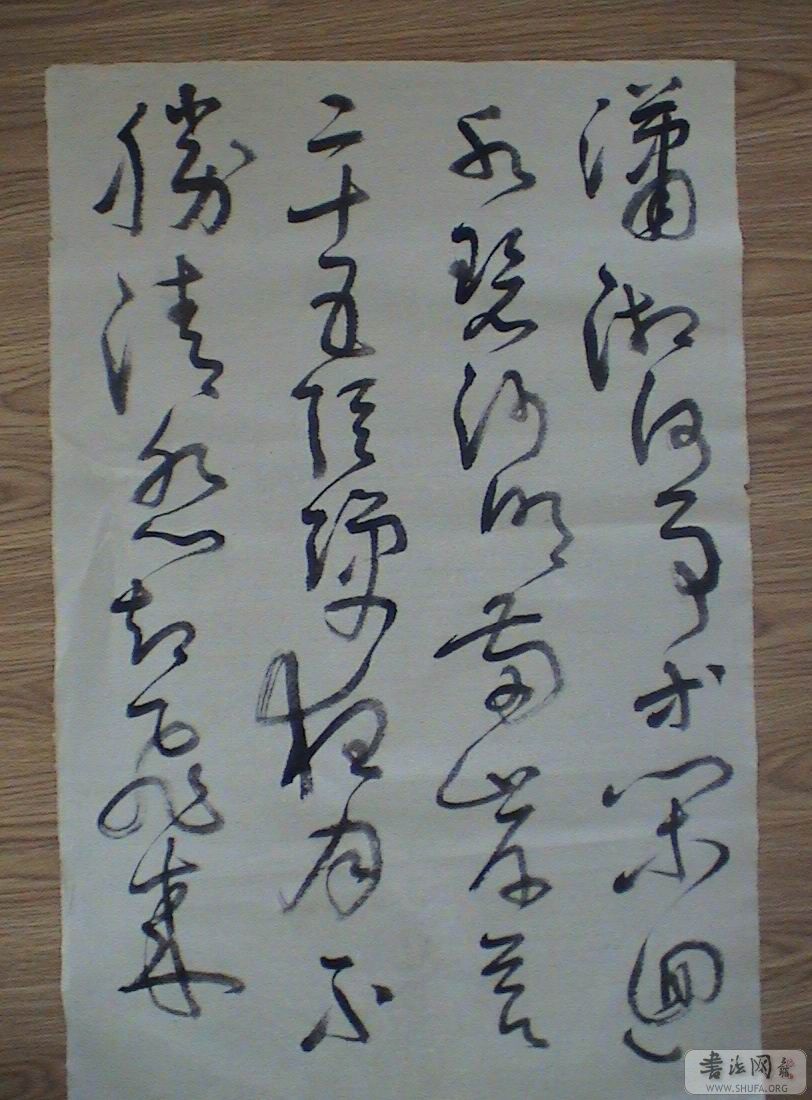 瀟湘何事等閑迴
水碧沙明兩岸苔
二十五弦彈夜月不
勝清怨却飛來
書法网
WWW.SHUFA.ORG